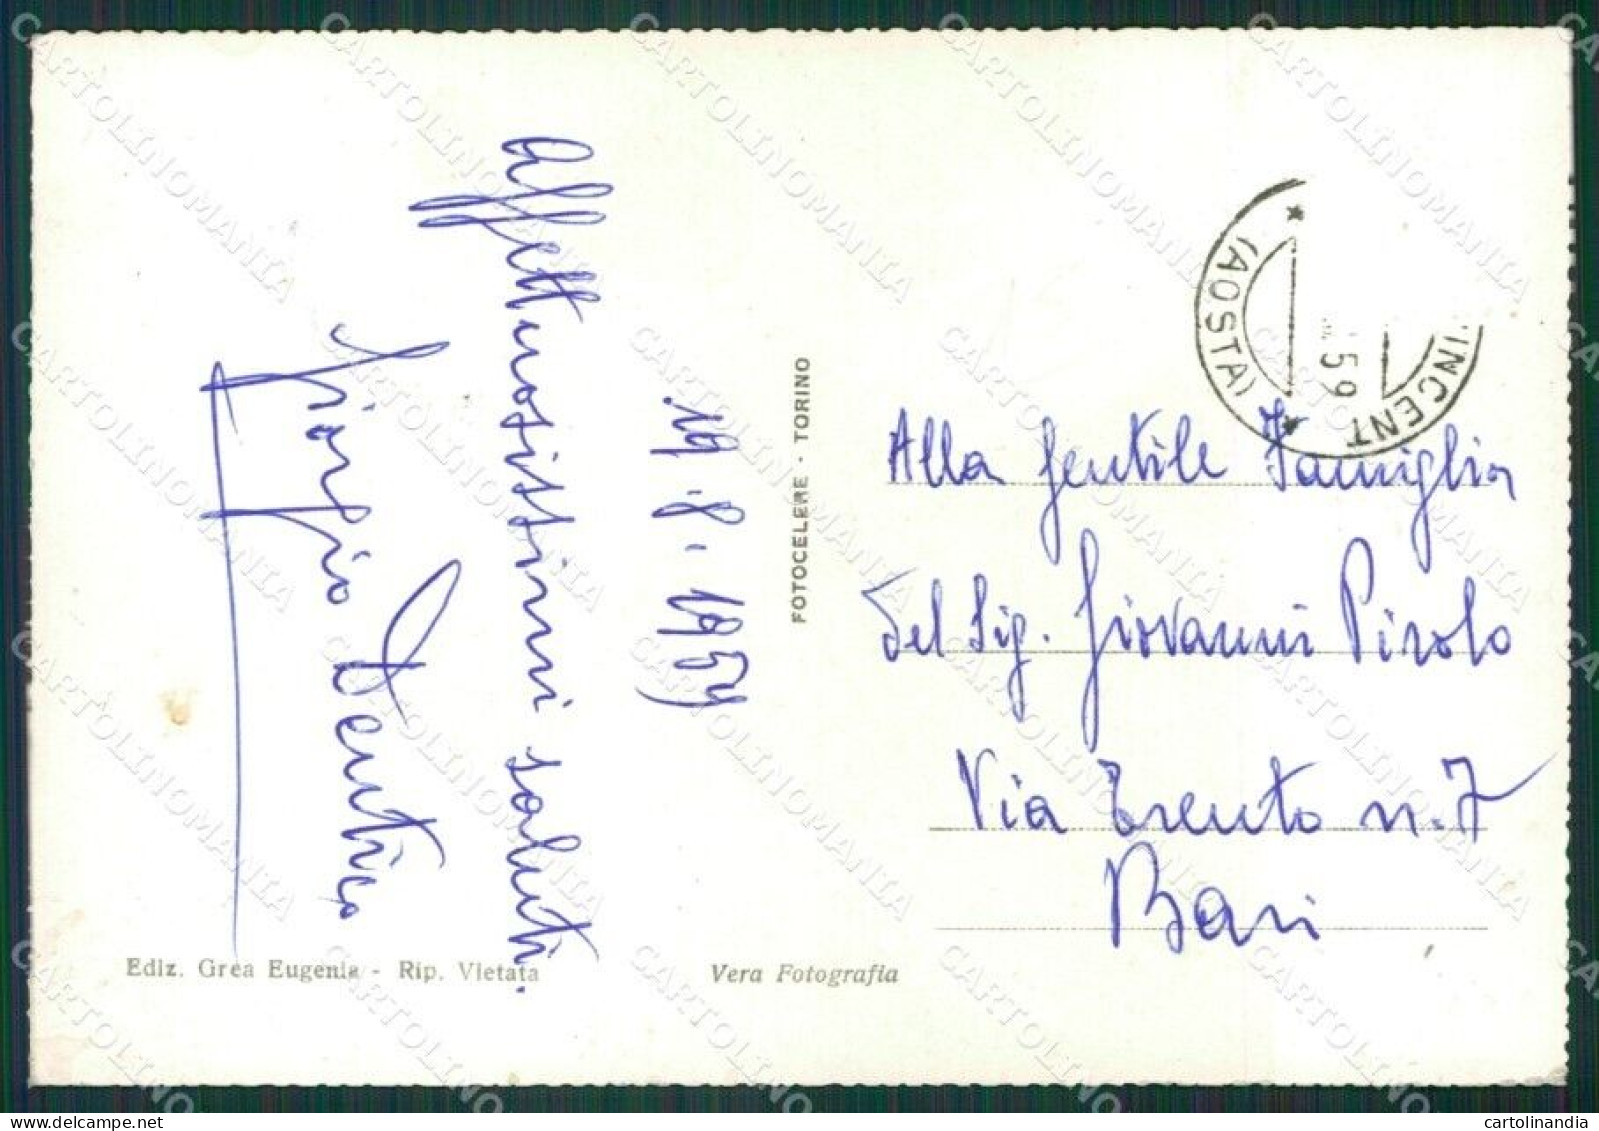 affettuosissimi saluti.
19.8.1959
FOTOCELERE - TORINO
Ediz. Grea Eugenia - Rip. Vietata
Vera Fotografia
INCENT
(AOSTA)
59
Alla gentile Famiglia
del Sig. Giovanni Pirolo
Via Trento n. 7
Bari
Giorgio Dentico
CARTOLINOMANIA
cartolinandia